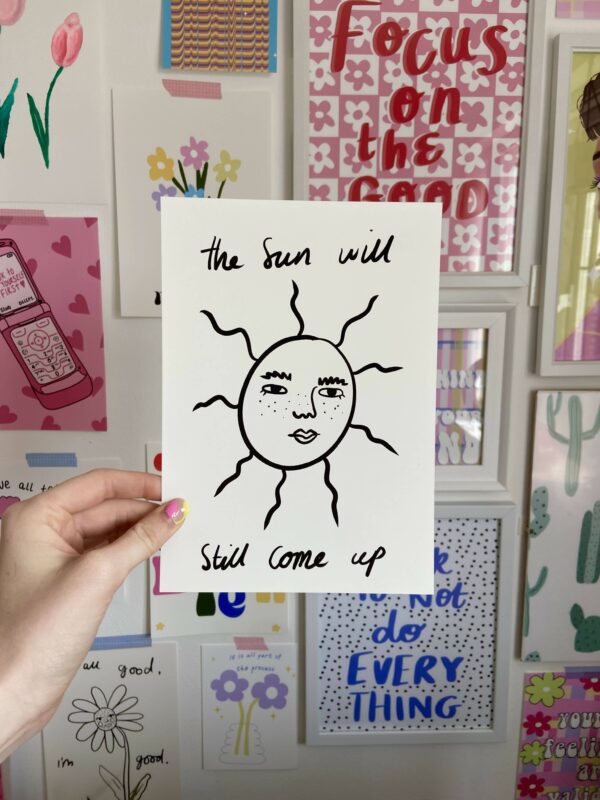 Focus
on
the
GOOD
the Sun will
Still Come up
FIRST
all good.
i'm good.
it is all part of
the process
Not
do
EVERY
THING
YOUR
feelin
are
valid